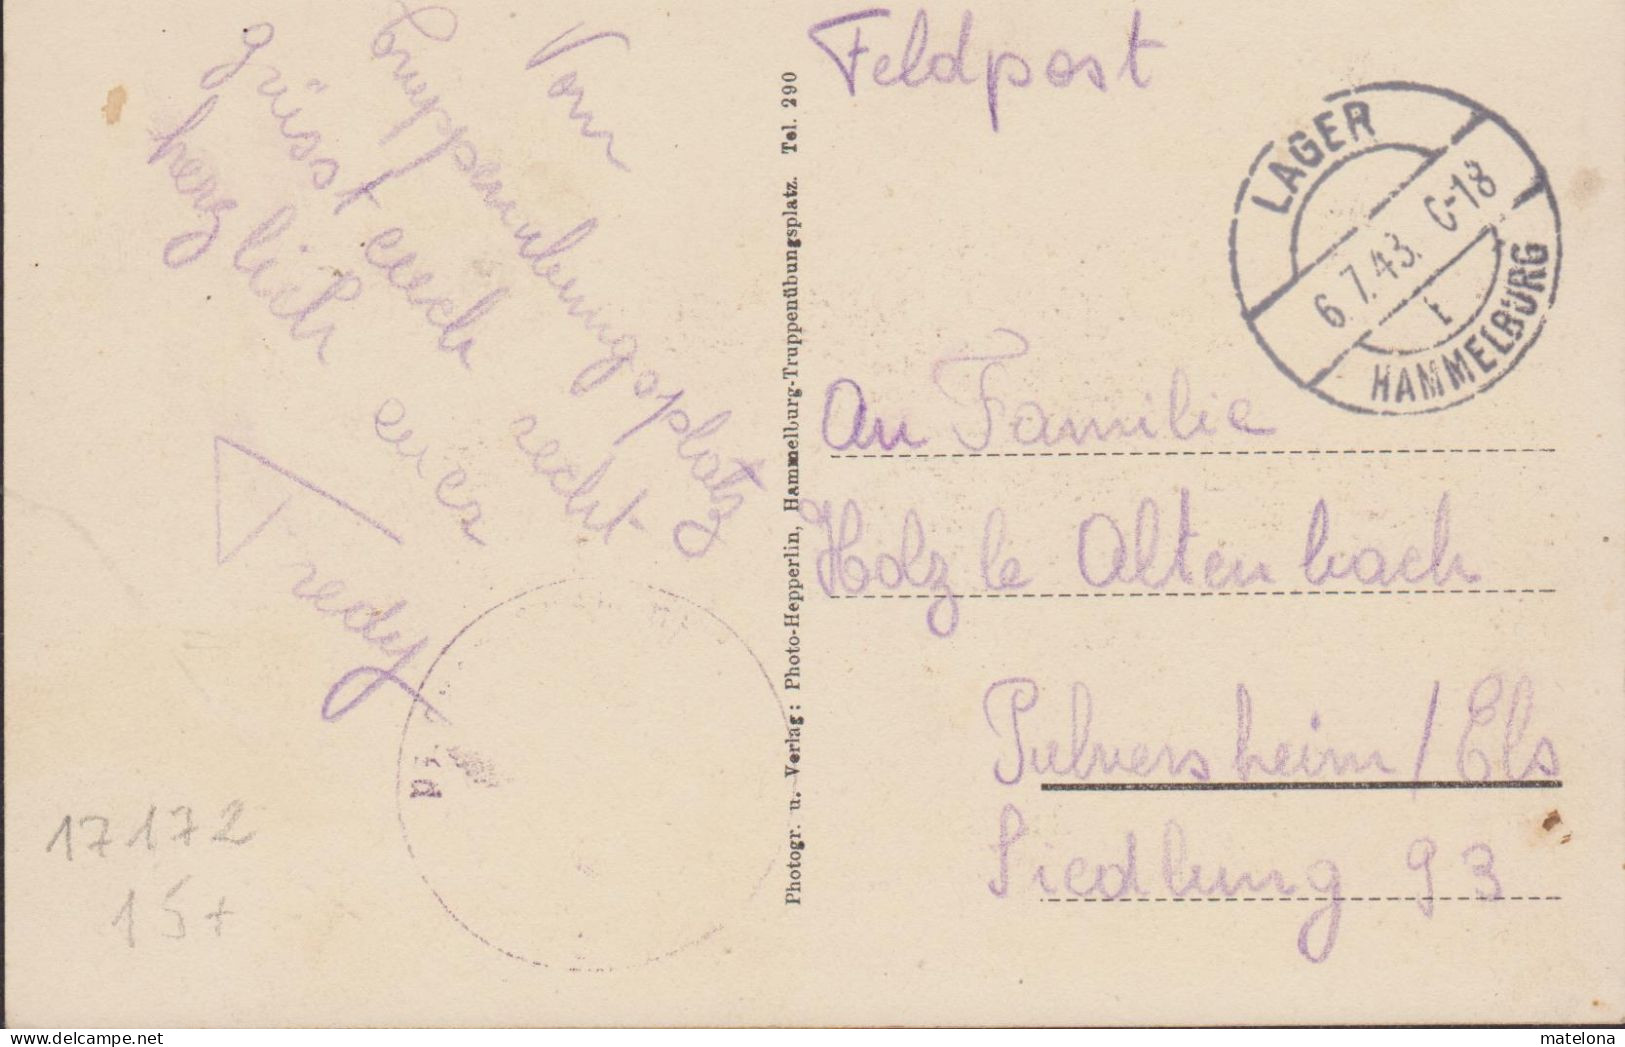 Vom
Truppenübungsplatz
grüsst euch recht
herzlich euer
Fredy
17172
15+
Photogr. u. Verlag: Photo-Hepperlin, Hammelburg-Truppenübungsplatz. Tel. 290
Feldpost
LAGER
6.7.43. C-18
HAMMELBURG
An Familie
Holzle Altenbach
Pulversheim / Els
Siedlung 93
matelona